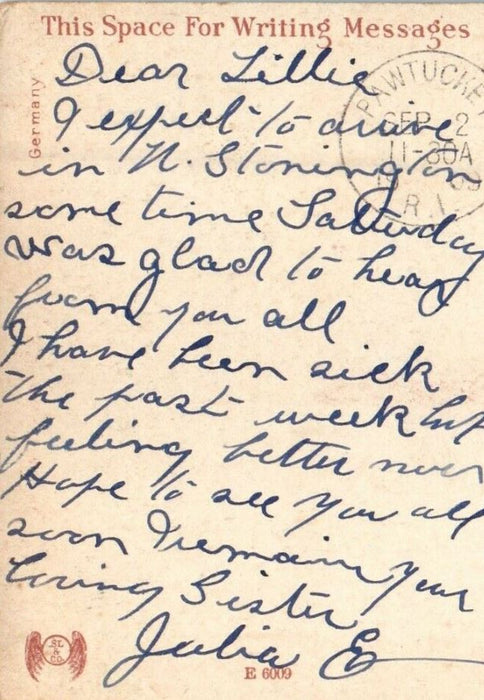 This Space For Writing Messages
Germany
PAWTUCKET
SEP 2
11-30A
R.I.
Dear Lillie
I expect to arrive
in N. Stonington
some time Saturday
was glad to hear
from you all
I have been sick
the past week but
feeling better now
Hope to see you all
soon I remain your
loving Sister
Julia E
SL & CO.
E 6009